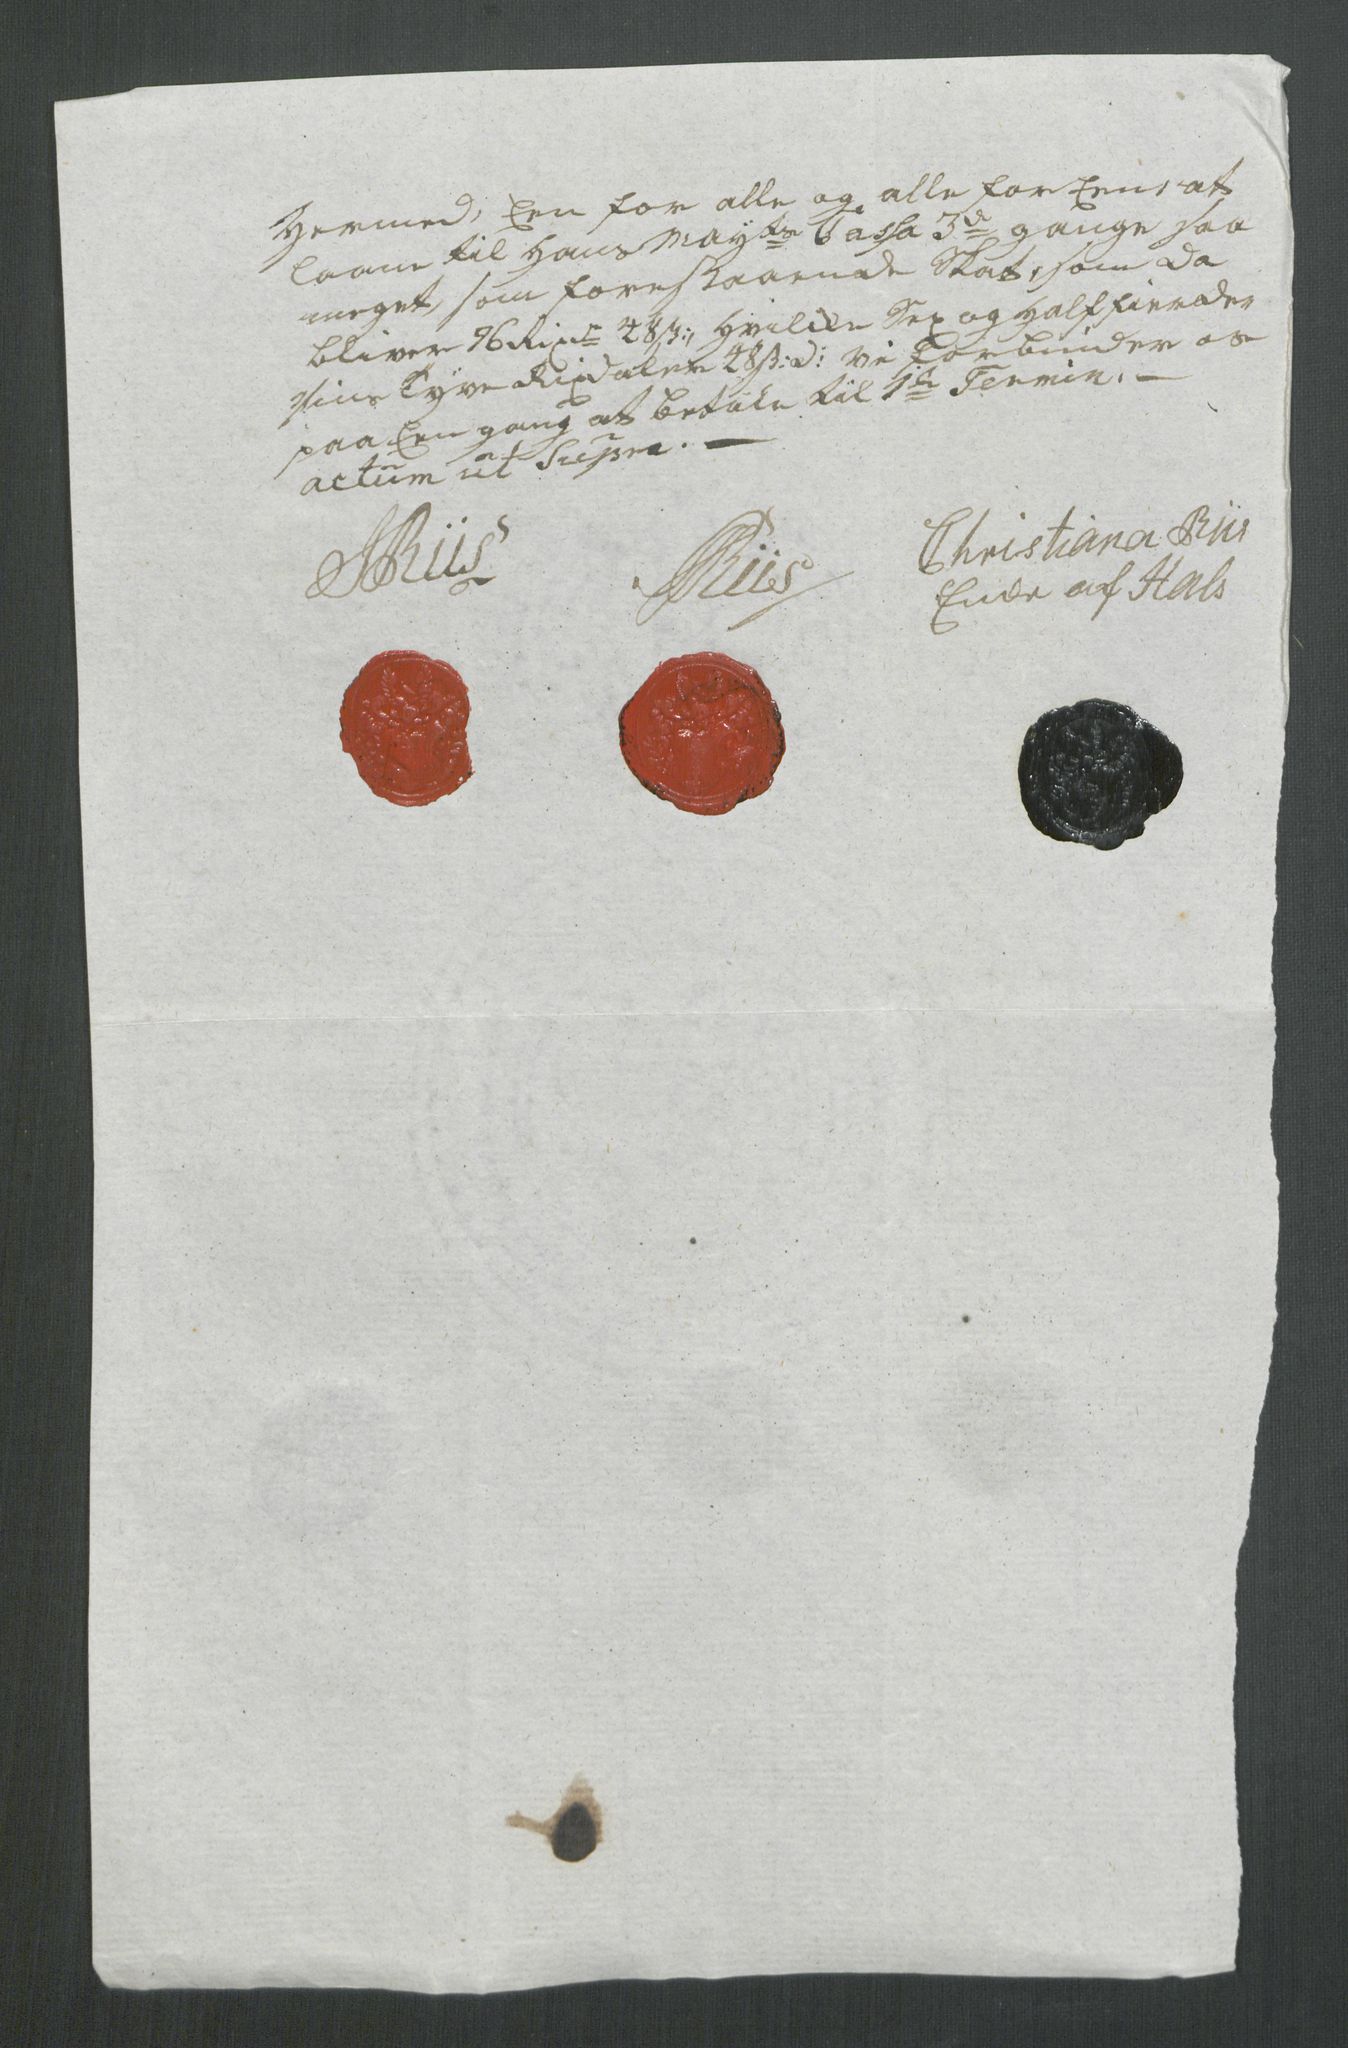 Hermed, Een for alle og alle for Een, at
laane til Hans Mayts Cassa 3de gange saa
meget, som foreskaarende Skat, som da
bliver 76 Rixdr 48 s:, Hvilke Sex og Half fierde
sins Tyve Rixdaler 48 s: d: vi forbinder os
paa Een gang at betale til 1te Termin. —
actum ut Supra. —
JRiis
Riis
Christiana Riis
Enke af Hals